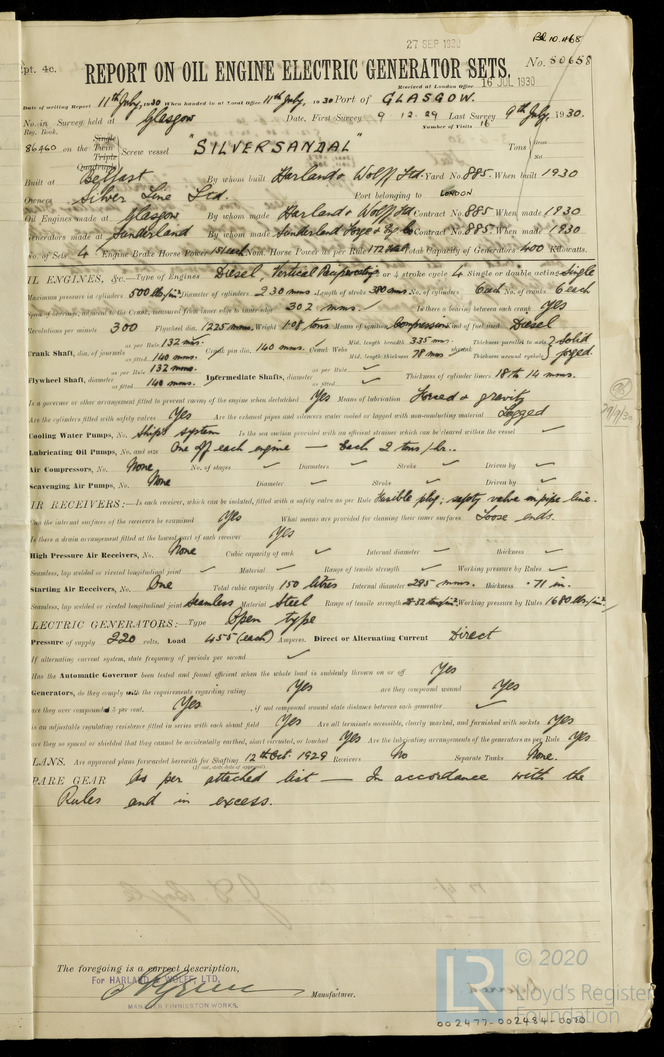 27 SEP 1930
Rpt. 4c.
REPORT ON OIL ENGINE ELECTRIC GENERATOR SETS.
No. 50658
Received at London Office 16 JUL 1930
Date of writing Report 11th July, 1930 When handed in at Local Office 11th July, 1930 Port of GLASGOW.
No. in Survey held at Glasgow Date, First Survey 9.12.29 Last Survey 9th July, 1930.
Reg. Book. Number of Visits 16
86460 on the Single Twin Triple Quadruple Screw vessel "SILVERSANDAL" Tons
Built at Belfast By whom built Harland & Wolff Ltd. Yard No. 885. When built 1930
Owners Silver Line Ltd. Port belonging to LONDON
Oil Engines made at Glasgow By whom made Harland & Wolff Ltd Contract No. 885 When made 1930
Generators made at Sunderland By whom made Sunderland Forge & Eng Co Contract No. 885. When made 1930
No. of Sets 4 Engine Brake Horse Power 151 each Nom. Horse Power per Rule Total Capacity of Generators 400 Kilowatts.
OIL ENGINES, &c.—Type of Engines Diesel, Vertical 2 or 4 stroke cycle 4 Single or double acting Single
Maximum pressure in cylinders 500 lbs/in² Diameter of cylinders 230 mms. Length of stroke 380 mms. No. of cylinders 6 each No. of cranks 6 each
Span of bearings, adjacent to the Crank, measured from inner edge to inner edge 302 mms. Is there a bearing between each crank Yes
Revolutions per minute 300 Flywheel dia. 1225 mms. Weight 1.08 tons Means of ignition Compression Kind of fuel used Diesel
Crank Shaft, dia. of journals as per Rule 132 mms. as fitted 140 mms. Crank pin dia. 140 mms. Crank Webs Mid. length breadth 335 mms. Mid. length thickness 78 mms Thickness parallel to axis Thickness around eyehole } Solid forged.
Flywheel Shaft, diameter as per Rule 132 mms. as fitted 140 mms. Intermediate Shafts, diameter as per Rule ✓ as fitted ✓ Thickness of cylinder liners 18 to 14 mms.
Is a governor or other arrangement fitted to prevent racing of the engine when declutched Yes Means of lubrication Forced & gravity
Are the cylinders fitted with safety valves Yes Are the exhaust pipes and silencers water cooled or lagged with non-conducting material Lagged
Cooling Water Pumps, No. Ships system Is the sea suction provided with an efficient strainer which can be cleared within the vessel ✓
Lubricating Oil Pumps, No. and size One off each engine — Each 2 tons/hr..
Air Compressors, No. None No. of stages ✓ Diameters ✓ Stroke ✓ Driven by ✓
Scavenging Air Pumps, No. None Diameter ✓ Stroke ✓ Driven by ✓
AIR RECEIVERS:—Is each receiver, which can be isolated, fitted with a safety valve as per Rule Fusible plug; safety valve in pipe line.
Can the internal surfaces of the receivers be examined Yes What means are provided for cleaning their inner surfaces Loose ends.
Is there a drain arrangement fitted at the lowest part of each receiver Yes
High Pressure Air Receivers, No. None Cubic capacity of each ✓ Internal diameter ✓ thickness ✓
Seamless, lap welded or riveted longitudinal joint ✓ Material ✓ Range of tensile strength ✓ Working pressure by Rules ✓
Starting Air Receivers, No. One Total cubic capacity 150 litres Internal diameter 295 mms. thickness .71 in.
Seamless, lap welded or riveted longitudinal joint Seamless Material Steel Range of tensile strength Working pressure by Rules 1680 lbs/in²
ELECTRIC GENERATORS:—Type Open type
Pressure of supply 220 volts. Load 455 (each) Amperes. Direct or Alternating Current Direct
If alternating current, state frequency of periods per second ✓
Has the Automatic Governor been tested and found efficient when the whole load is suddenly thrown on or off Yes
Generators, do they comply with the requirements regarding rating Yes are they compound wound Yes
are they over compounded 5 per cent. Yes, if not compound wound state distance between each generator ✓
is an adjustable regulating resistance fitted in series with each shunt field Yes Are all terminals accessible, clearly marked, and furnished with sockets Yes
are they so spaced or shielded that they cannot be accidentally earthed, short circuited, or touched Yes Are the lubricating arrangements of the generators as per Rule Yes
PLANS. Are approved plans forwarded herewith for Shafting 12th Oct. 1929 Receivers No Separate Tanks None.
(If not, state date of approval)
SPARE GEAR As per attached list — In accordance with the
Rules and in excess.
The foregoing is a correct description,
For HARLAND & WOLFF, LTD.
Manufacturer.
MANAGER FINNIESTON WORKS.
LR
© 2020
Lloyd's Register
Foundation
002477-002484-0070